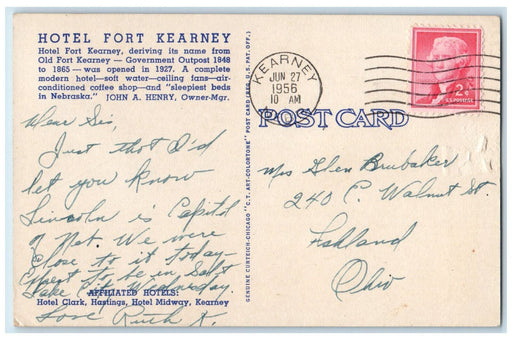 HOTEL FORT KEARNEY
Hotel Fort Kearney, deriving its name from
Old Fort Kearney — Government Outpost 1848
to 1865 — was opened in 1927. A complete
modern hotel—soft water—ceiling fans—air-
conditioned coffee shop—and "sleepiest beds
in Nebraska." JOHN A. HENRY, Owner-Mgr.
Dear Sis,
Just thot I'd
let you know
Lincoln is Capitol
of Neb. We were
close to it today-
Expect to be in Salt
Lake City Wednesday.
AFFILIATED HOTELS:
Hotel Clark, Hastings, Hotel Midway, Kearney
Love Ruth K.
GENUINE CURTEICH-CHICAGO "C.T. ART-COLORTONE" POST CARD (REG. U.S. PAT. OFF.)
KEARNEY
JUN 27
10 AM
1956
2¢
U.S. POSTAGE
POST CARD
Mrs Glen Brubaker
240 C. Walnut St.
Ashland
Ohio